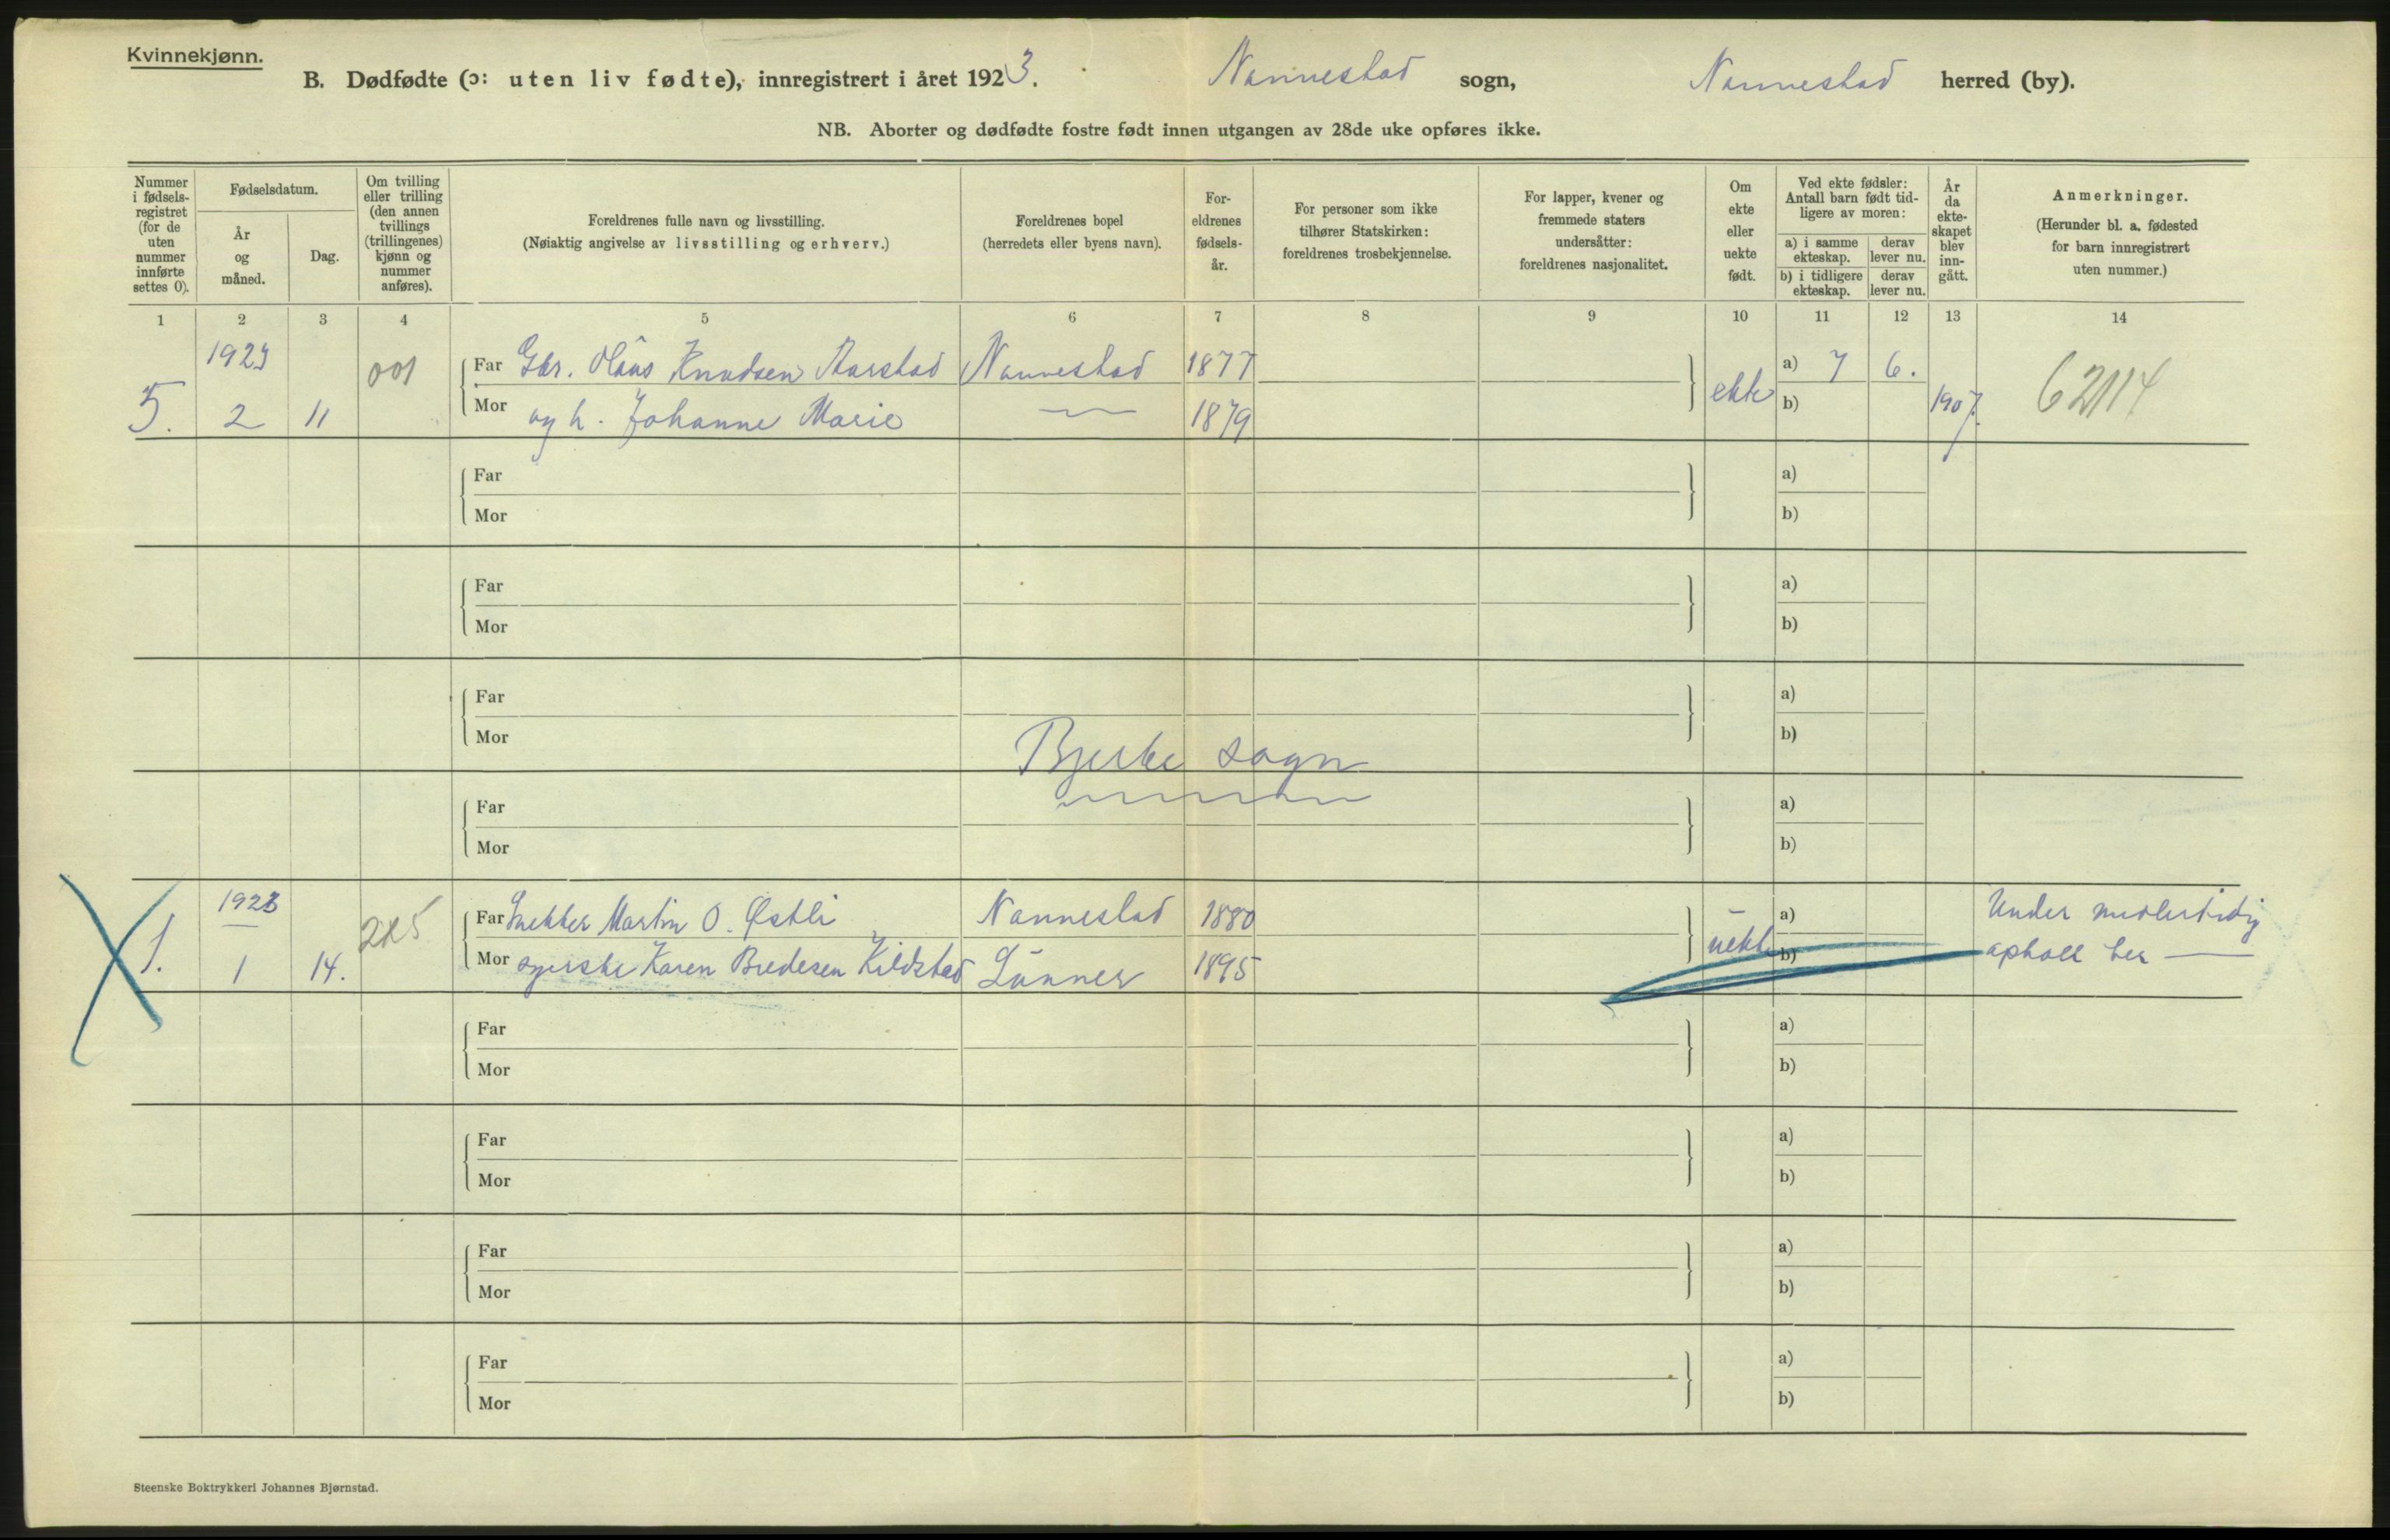 Kvinnekjønn.
B. Dødfødte (ɔ: uten liv fødte), innregistrert i året 1923. Nannestad sogn, Nannestad herred (by).
NB. Aborter og dødfødte fostre født innen utgangen av 28de uke opføres ikke.
Nummer i fødsels-registret (for de uten nummer innførte settes 0).
Fødselsdatum.
År og måned.
Dag.
Om tvilling eller trilling (den annen tvillings (trillingenes) kjønn og nummer anføres).
Foreldrenes fulle navn og livsstilling.
(Nøiaktig angivelse av livsstilling og erhverv.)
Foreldrenes bopel
(herredets eller byens navn).
For-eldrenes fødsels-år.
For personer som ikke tilhører Statskirken: foreldrenes trosbekjennelse.
For lapper, kvener og fremmede staters undersåtter: foreldrenes nasjonalitet.
Om ekte eller uekte født.
Ved ekte fødsler: Antall barn født tid-ligere av moren:
a) i samme ekteskap.
derav lever nu.
b) i tidligere ekteskap.
derav lever nu.
År da ekte-skapet blev inn-gått.
Anmerkninger.
(Herunder bl. a. fødested for barn innregistrert uten nummer.)
1 2 3 4 5 6 7 8 9 10 11 12 13 14
1923 001 Far Gbr. Olaus Knudsen Aarstad Nannestad 1877 a) 7 6.
5. 2 11 Mor og h. Johanne Marie — 1879 ekte b) 1907. 62114
Far a)
Mor b)
Far a)
Mor b)
Far a)
Mor b)
Bjerke sogn
Far a)
Mor b)
1923 225 Far Snekker Martin O. Østli Nannestad 1880 a) Under midlertidig
1. 1 14. Mor syerske Karen Bredesen Kildstad Lunner 1895 uekte b) ophold her —
Far a)
Mor b)
Far a)
Mor b)
Far a)
Mor b)
Far a)
Mor b)
Steenske Boktrykkeri Johannes Bjørnstad.